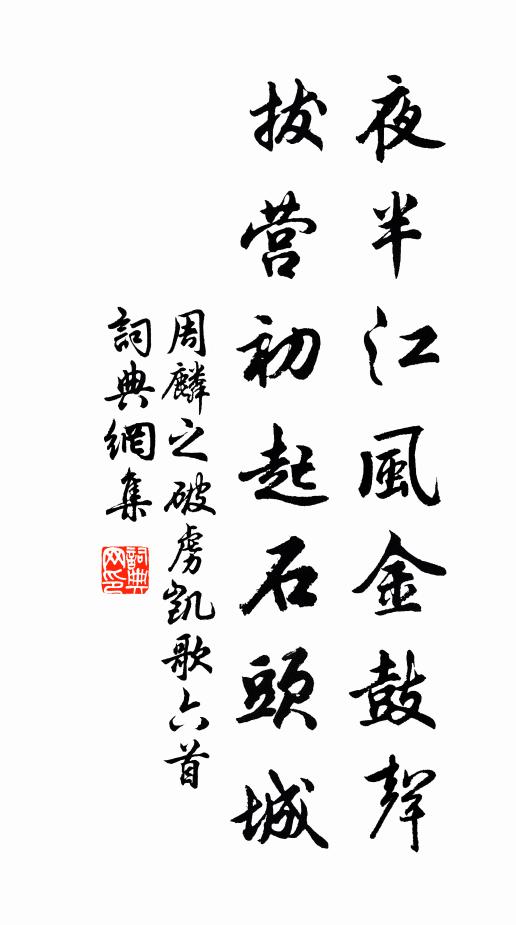 夜半江風金鼓聲
拔營初起石頭城
周麟之破虜凱歌六首
詞典網集
詞典网印